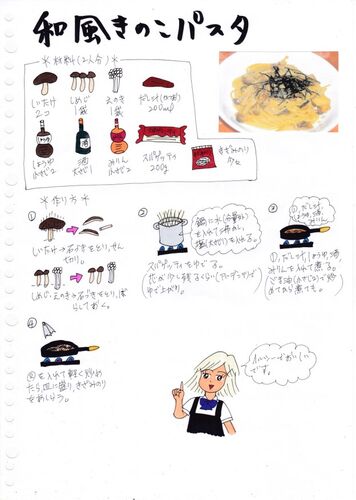 和風きのこパスタ
＊材料(2人分)＊
しいたけ
2コ
しめじ
1袋
えのき
1袋
だし汁(かつお)
200ml
しょうゆ
大さじ2
酒
大さじ2
みりん
大さじ2
スパゲッティ
200g
きざみのり
少々
＊作り方＊
①
しいたけ→石づきをとり、せん
切り。
しめじ・えのき→石づきをとり、ほぐ
らしておく。
②
鍋に水(分量外)
を入れて沸かし、
塩(大さじ1)を入れる。
スパゲッティをゆでる。
芯が少し残るくらい(アルデンテ)まで
ゆで上げ。
③
①、だし汁、しょうゆ、酒
みりんを入れて煮る。
④
②を入れて軽く炒め
たら皿に盛り、きざみのり
をあしらう。
ヘルシーでおいしい
です。